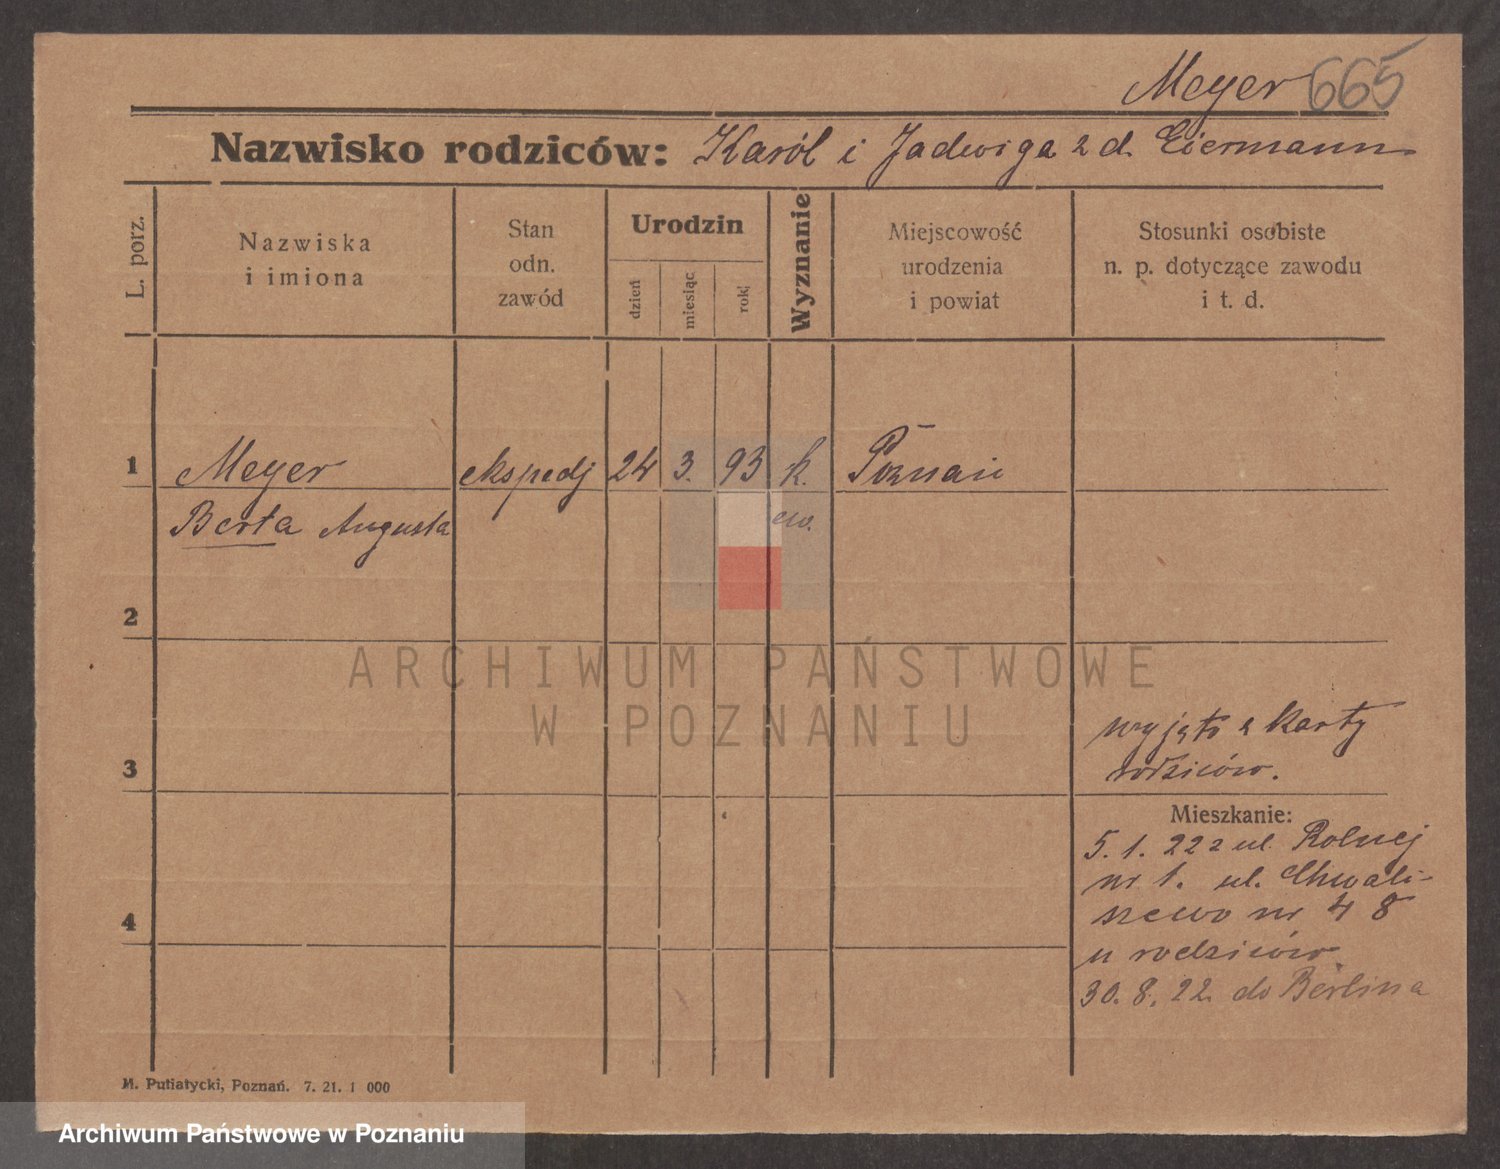 Meyer 665
Nazwisko rodziców: Karól i Jadwiga z d. Eiermann
L. porz.
Nazwiska
i imiona
Stan
odn.
zawód
Urodzin
dzień
miesiąc
rok
Wyznanie
Miejscowość
urodzenia
i powiat
Stosunki osobiste
n. p. dotyczące zawodu
i t. d.
1 Meyer ekspedj 24 3. 93 k. Poznań
Berta Augusta ew.
2
ARCHIWUM PAŃSTWOWE
W POZNANIU
wyjęto z karty
3 rodziców.
Mieszkanie:
5. 1. 22 z ul. Rolnej
nr 1. ul. Chwali-
4 szewo nr 48
u rodziców
30. 8. 22. do Berlina
M. Putiatycki, Poznań. 7. 21. 1 000
Archiwum Państwowe w Poznaniu